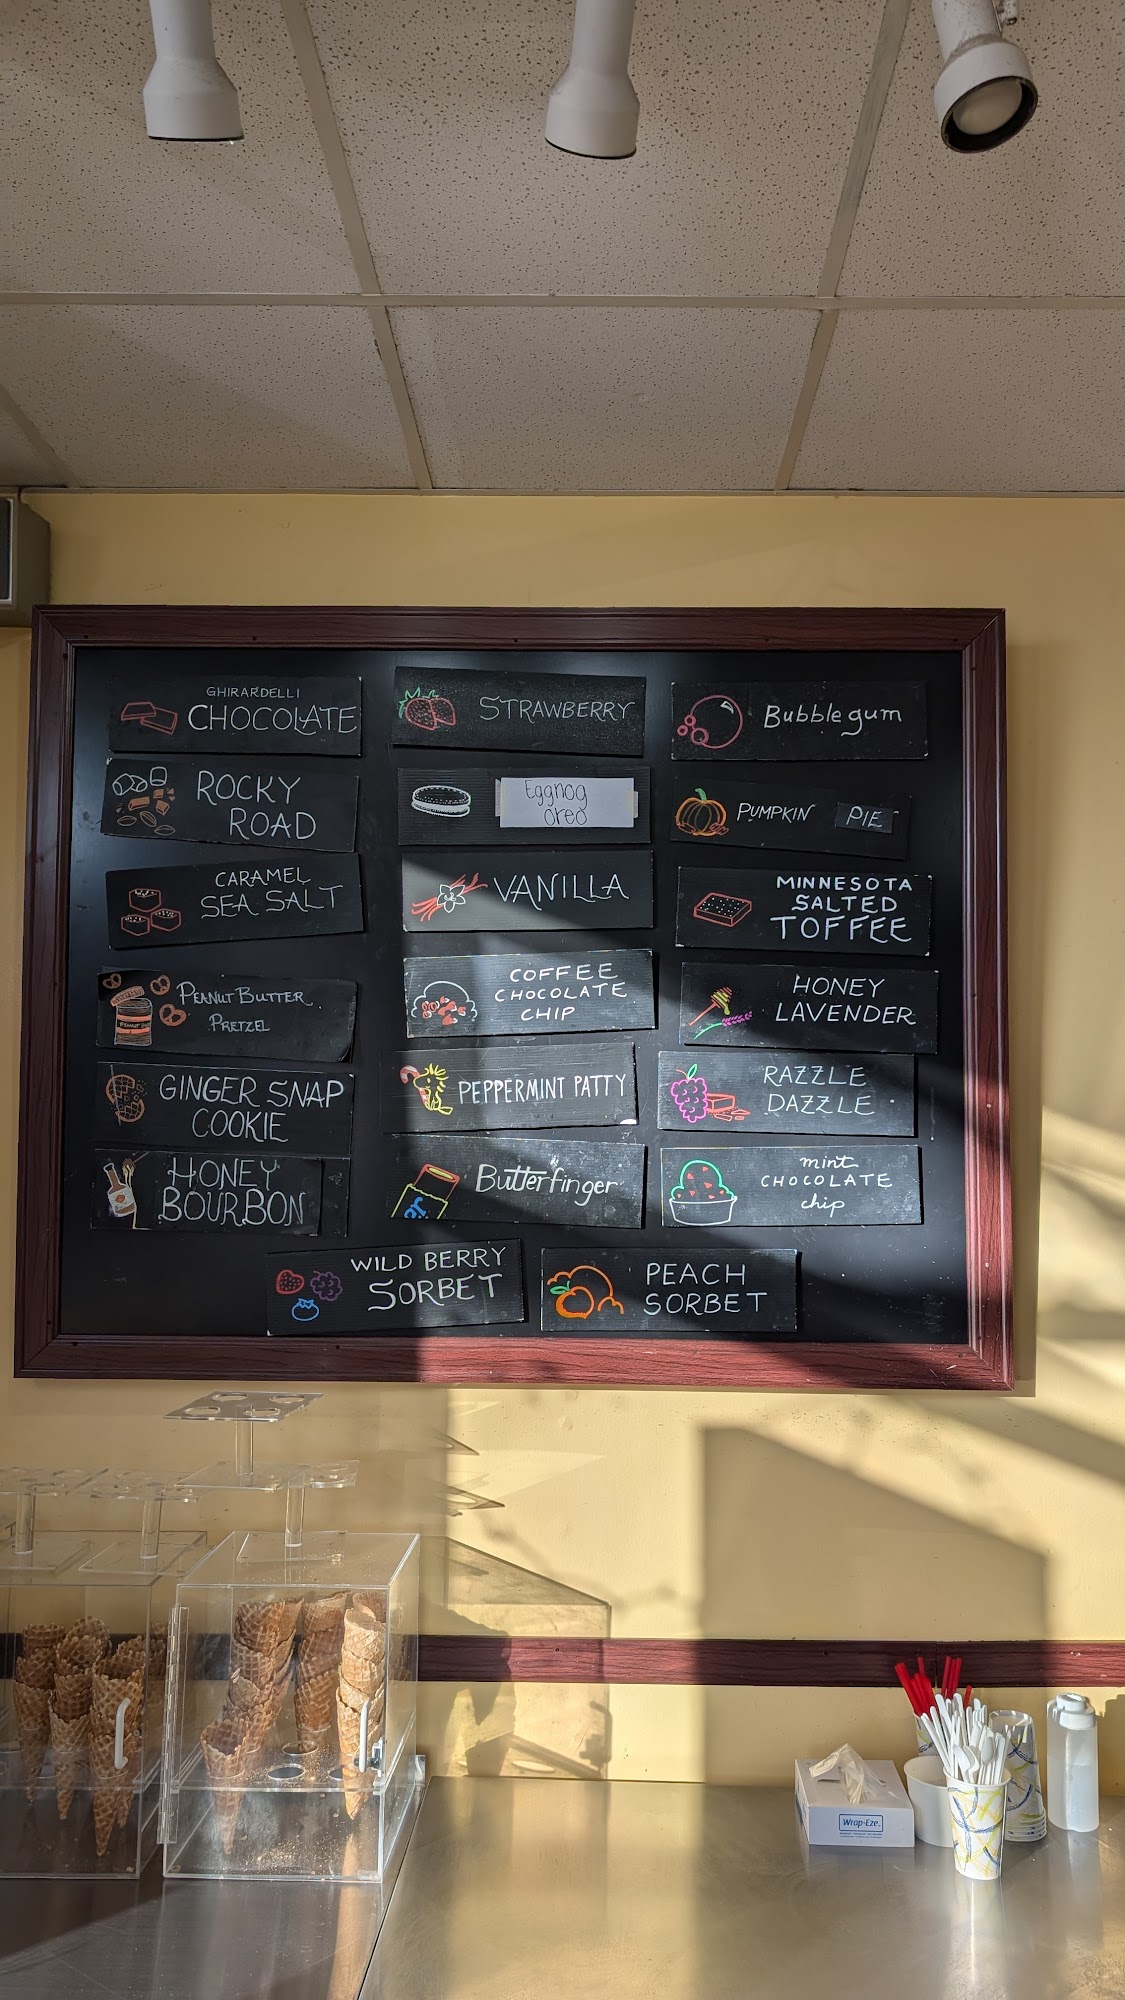 GHIRARDELLI
CHOCOLATE
ROCKY
ROAD
CARAMEL
SEA SALT
PEANUT BUTTER
PRETZEL
GINGER SNAP
COOKIE
HONEY
BOURBON
STRAWBERRY
Eggnog
oreo
VANILLA
COFFEE
CHOCOLATE
CHIP
PEPPERMINT PATTY
Butterfinger
Bubble gum
PUMPKIN PIE
MINNESOTA
SALTED
TOFFEE
HONEY
LAVENDER
RAZZLE
DAZZLE
mint
CHOCOLATE
chip
WILD BERRY
SORBET
PEACH
SORBET
Wrap-Eze.